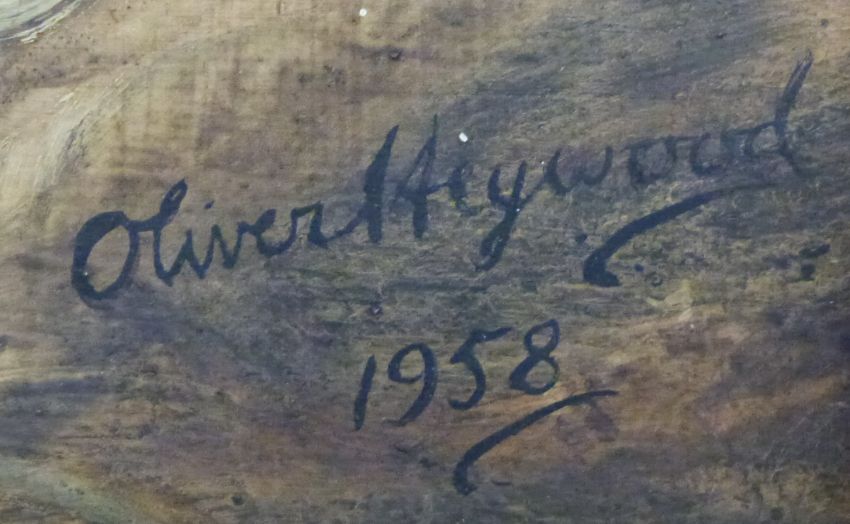 Oliver Heywood
1958